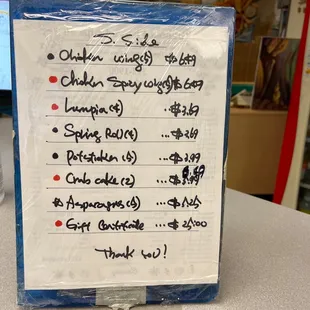 S. Side
Chicken wing(5) $6.49
Chicken Spicy wing(5) $6.49
Lumpia(4) ...$3.69
Spring Roll(4) ...$3.69
Potsticker(5) ...$3.99
Crab cake(2) ...$
Asparagus(5) ...$
Gift Certificate ...$25.00
Thank You!